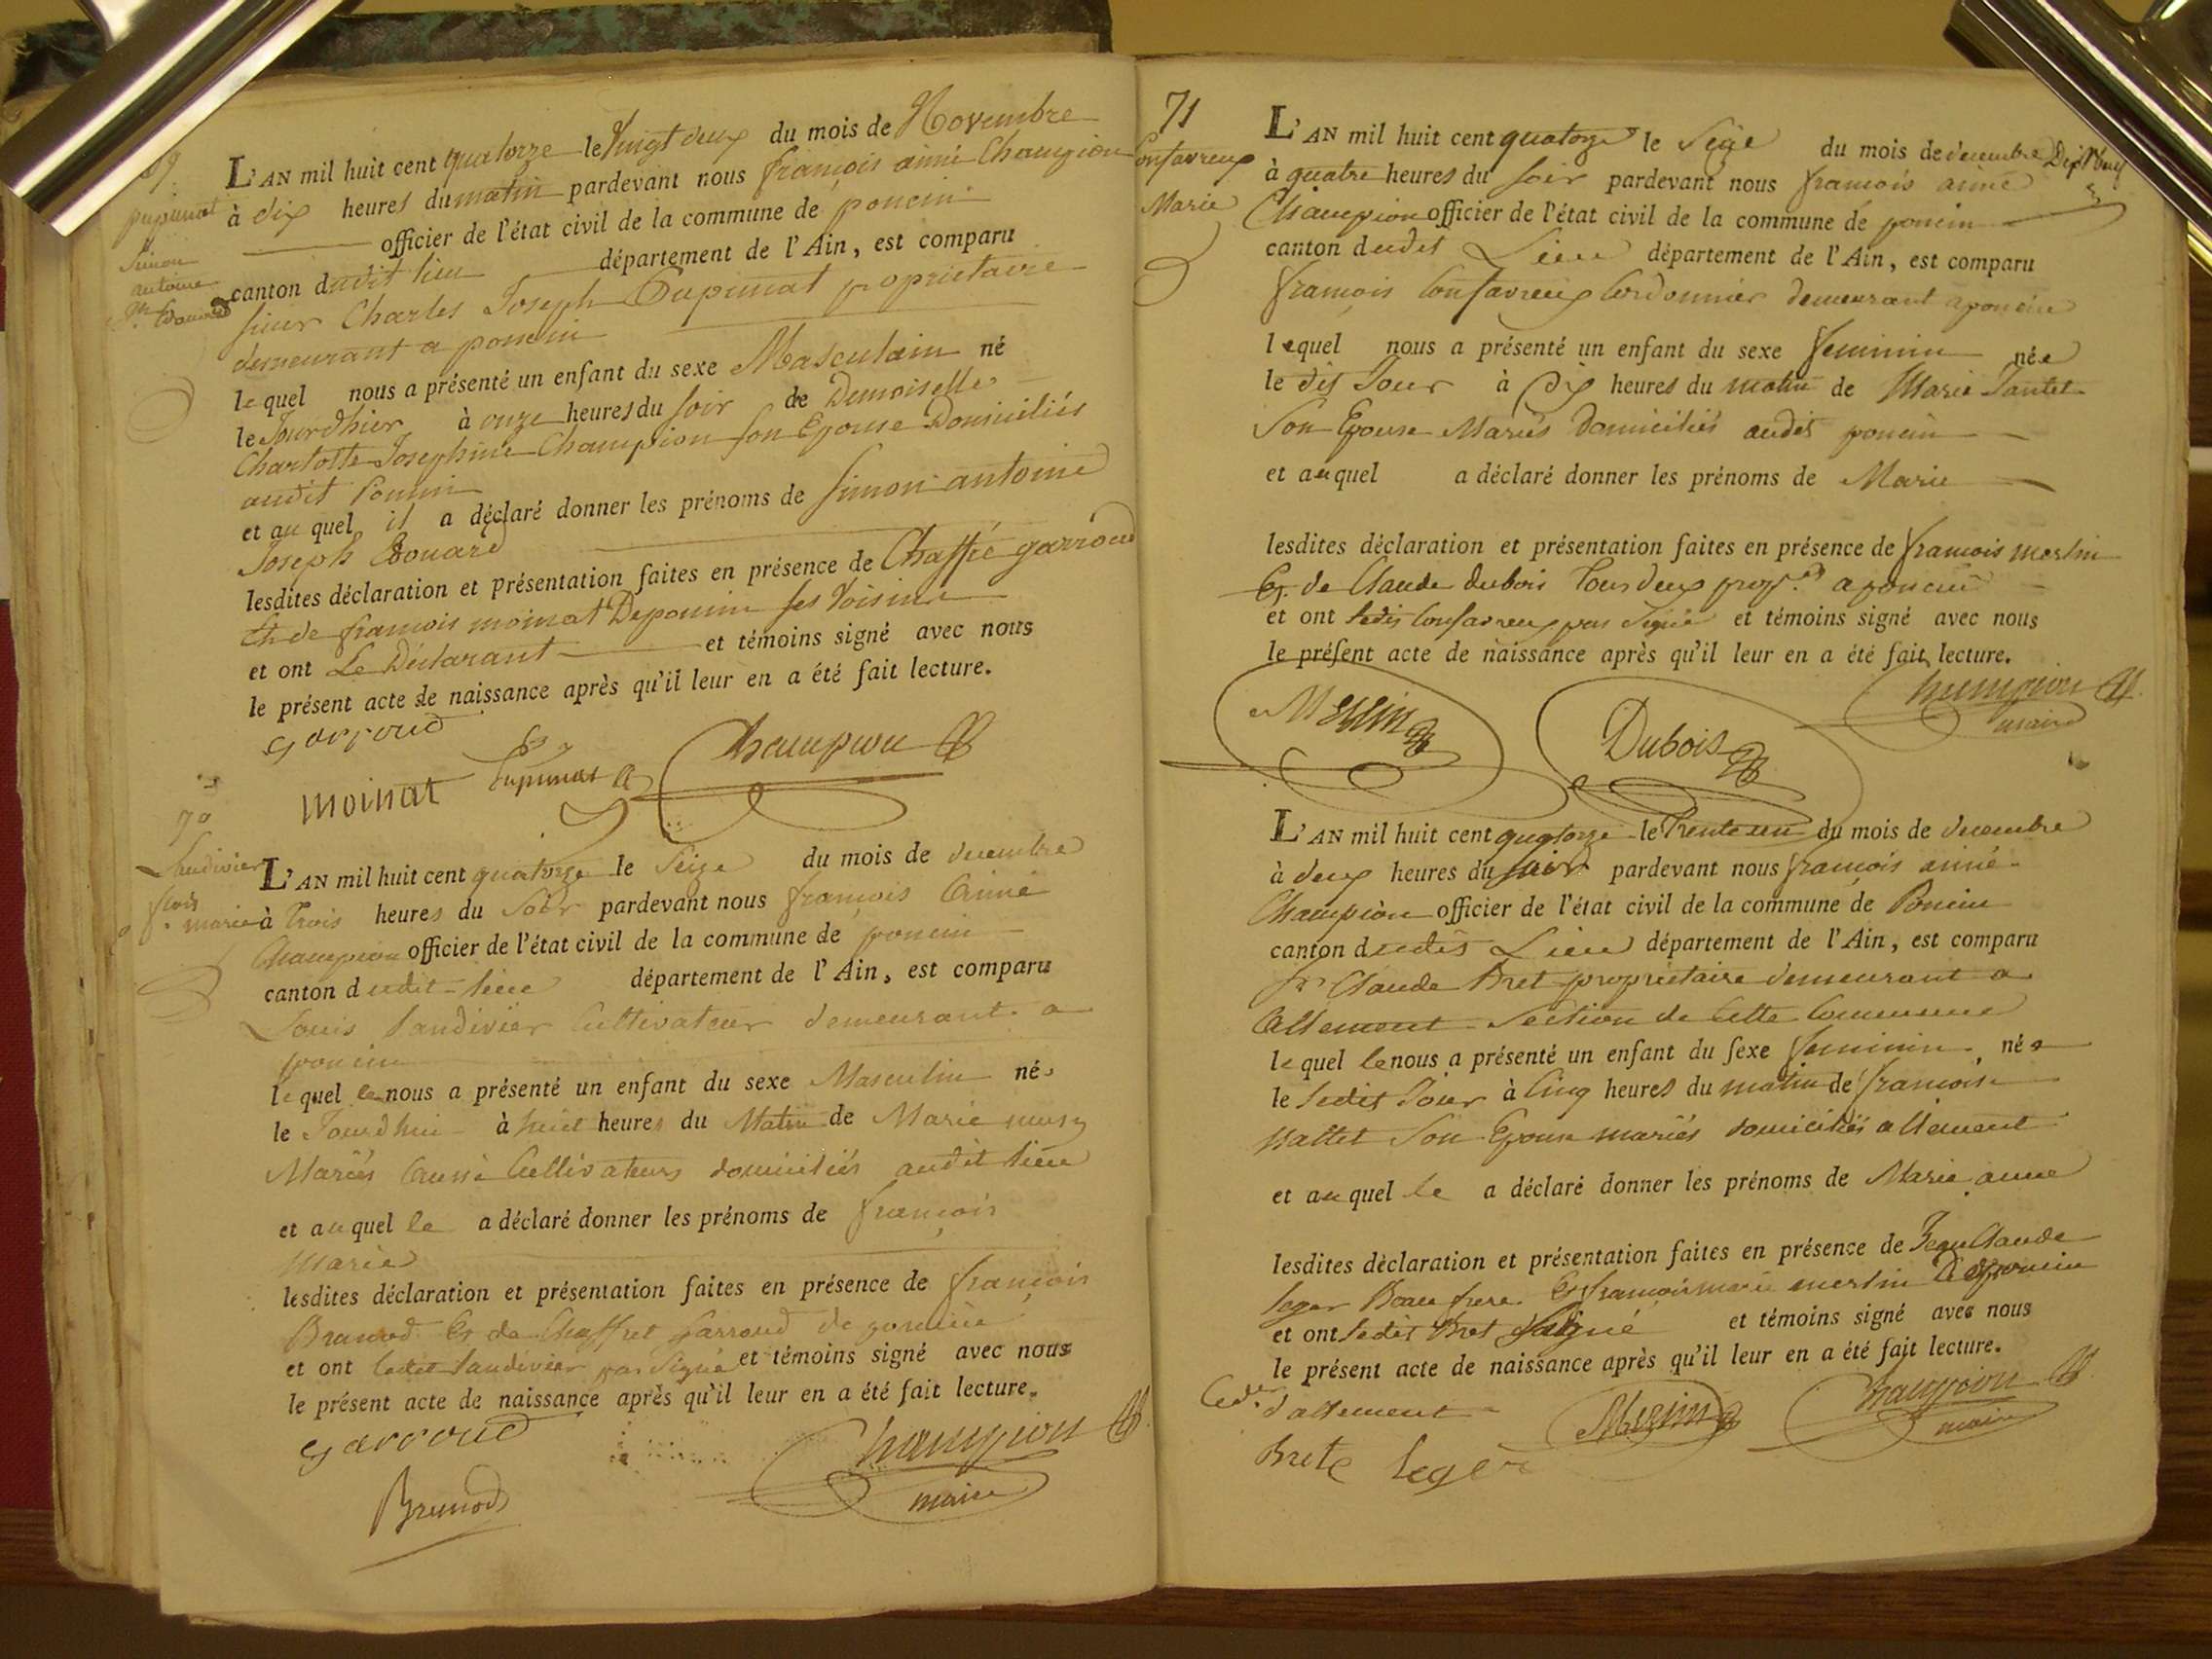 69.
pupunat
Simon
antoine
Jph Edouard
L'AN mil huit cent quatorze le Vingt deux du mois de Novembre
à dix heures du matin pardevant nous françois aimé Champion
officier de l'état civil de la commune de poncin
canton dudit lieu département de l'Ain, est comparu
sieur Charles Joseph Dupunat proprietaire
demeurant a poncin
lequel nous a présenté un enfant du sexe Masculain né
le Jourdhier à onze heures du soir de Demoiselle
Charlotte Josephine Champion son Epouse Domiciliés
audit Poncin
et au quel il a déclaré donner les prénoms de Simon antoine
Joseph Edouard
lesdites déclaration et présentation faites en présence de Chaffré garroud
Et de françois moinat Deponcin ses Voisins
et ont Le Déclarant et témoins signé avec nous
le présent acte de naissance après qu'il leur en a été fait lecture.
garroud
moinat Dupunat Champion
70
Landivier
flois
marie
L'AN mil huit cent quatorze le Seize du mois de decembre
à trois heures du Soir pardevant nous françois Aimé
Champion officier de l'état civil de la commune de poncin
canton dudit lieu département de l'Ain, est comparu
Louis Landivier Cultivateur demeurant a
poncin
lequel le nous a présenté un enfant du sexe Masculin né
le Jourdhui à huit heures du Matin de Marie musy
Mariés Aussi Cultivateurs domiciliés audit lieu
et auquel le a déclaré donner les prénoms de françois
Marie
lesdites déclaration et présentation faites en présence de françois
Brunod Et de Chaffret Garroud de poncin
et ont ledit Landivier pas Signé et témoins signé avec nous
le présent acte de naissance après qu'il leur en a été fait lecture.
garroud Champion
Brunod maire
71
Confavreux
Marie
L'AN mil huit cent quatorze le Seize du mois de decembre
à quatre heures du soir pardevant nous françois aimé
Champion officier de l'état civil de la commune de poncin
canton dudit Lieu département de l'Ain, est comparu
françois Confavreux Cordonnier demeurant a poncin
lequel nous a présenté un enfant du sexe feminin née
le dit Jour à Dix heures du matin de Marie Tantet
Son Epouse Mariés Domiciliés audit poncin
et auquel a déclaré donner les prénoms de Marie
lesdites déclaration et présentation faites en présence de françois merlin
Et de Claude dubois Tous deux a poncin
et ont ledit Confavreux pas Signé et témoins signé avec nous
le présent acte de naissance après qu'il leur en a été fait lecture.
Merlin Dubois Champion
maire
L'AN mil huit cent quatorze le Trente un du mois de decembre
à deux heures du soir pardevant nous françois aimé
Champion officier de l'état civil de la commune de Poncin
canton dudit Lieu département de l'Ain, est comparu
Sr Claude Bret proprietaire demeurant a
Allement Section de Cette Commune
lequel le nous a présenté un enfant du sexe feminin née
le ledit Jour à Cinq heures du matin de françoise
Son Epouse mariés domiciliés allement
et auquel le a déclaré donner les prénoms de Marie anne
lesdites déclaration et présentation faites en présence de Jean Claude
leger Beau frere Et françois marie merlin De poncin
et ont ledit Bret Signé et témoins signé avec nous
le présent acte de naissance après qu'il leur en a été fait lecture.
d'allement Merlin Champion
Brete leger maire